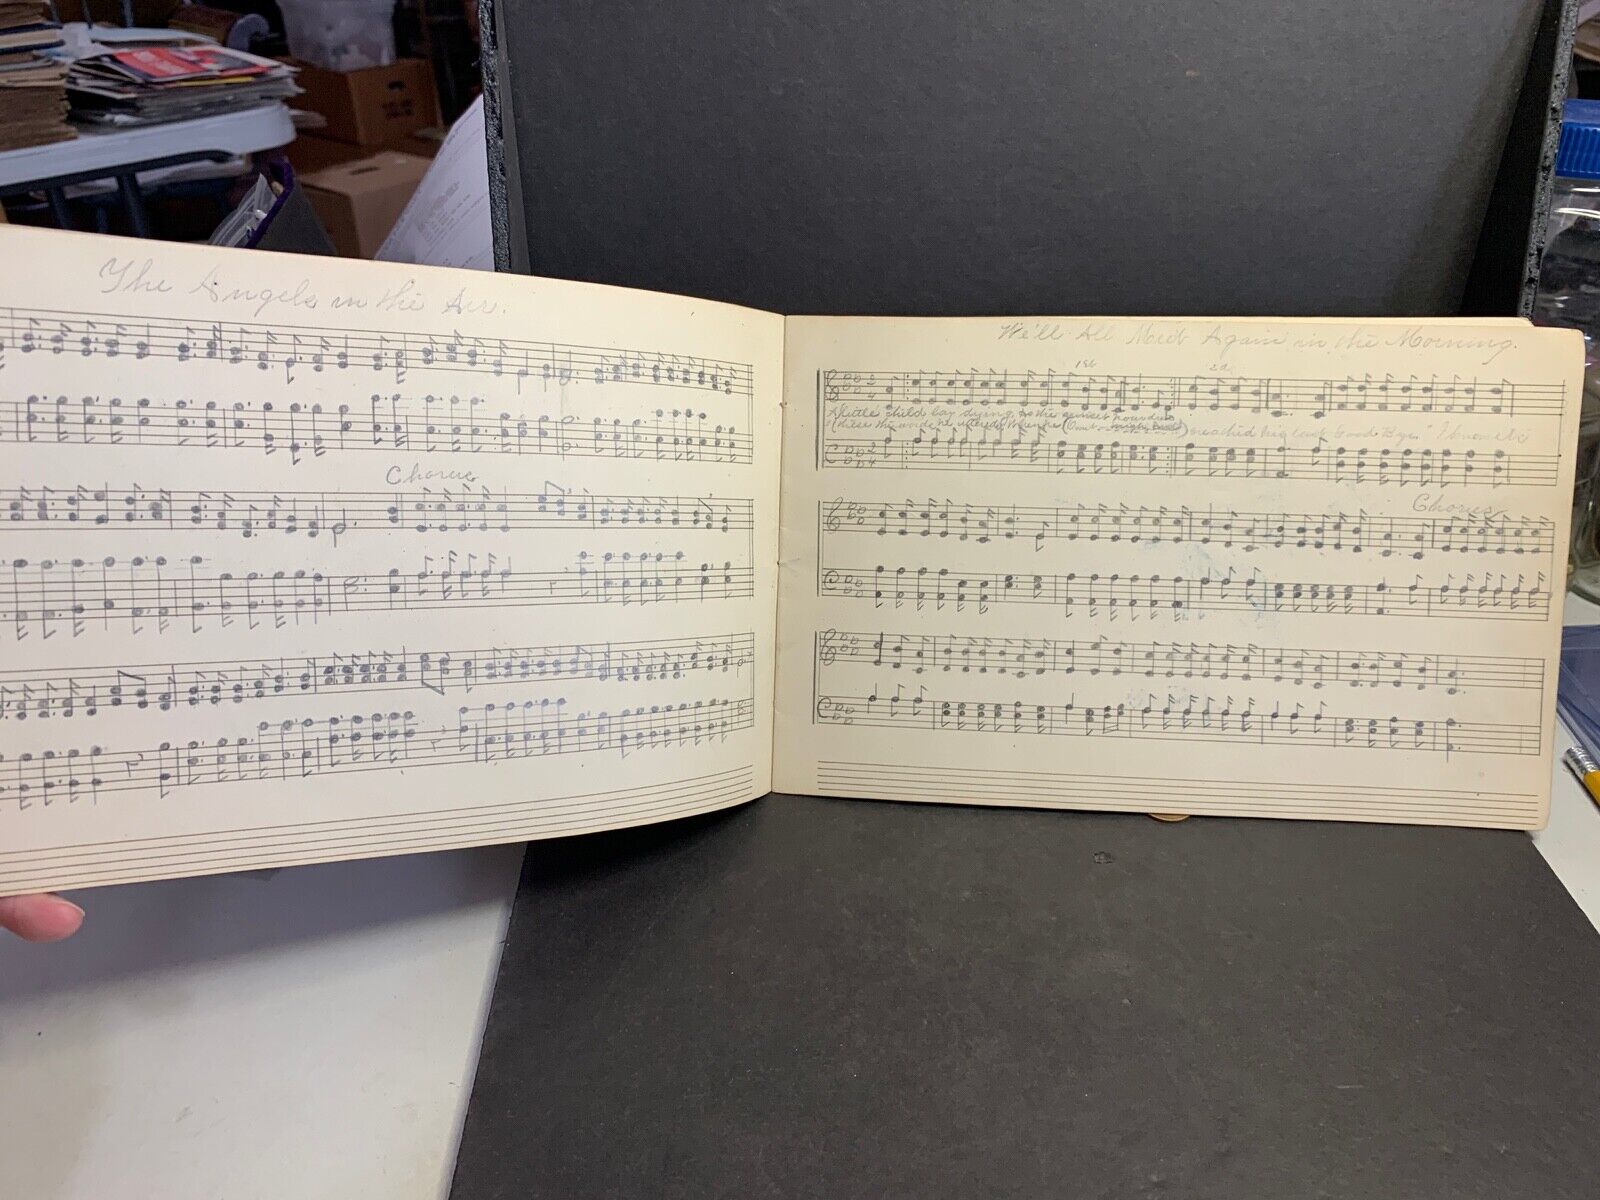 The Angels in the Air.
Chorus
We'll All Meet Again in the Morning.
1st 2d
2
4
A little child lay dying, As the sunset
these the words he uttered When he reached his last Good Bye. "I know it's
2
4
Chorus